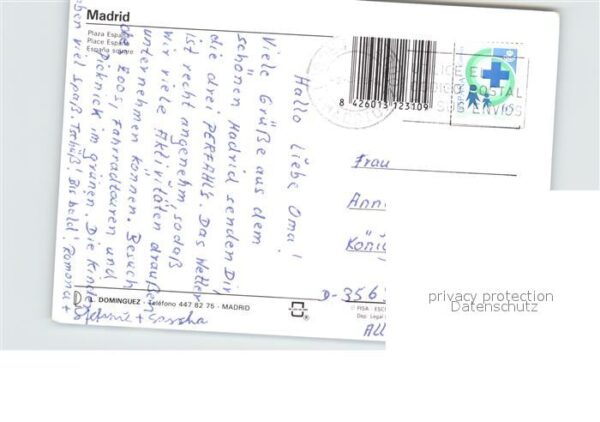 Madrid
Plaza España
Place Espa
España square
Hallo liebe Oma!
Viele Grüße aus dem
schönen Madrid senden Dir
die drei PERFAHLS. Das Wetter
ist recht angenehm, sodaß
wir viele Aktivitäten draußen
unternehmen können. Besuch
des Zoos, Fahrradtouren und
Picknick im grünen. Die Kinder
haben viel Spaß. Tschüß! Bis bald! Ramona +
Stefanie + Sascha
8 426013 123109
UTILICE EL
CODIGO POSTAL
EN SUS ENVIOS
Frau
Ann
König
D-356
All
DOMINGUEZ - Teléfono 447 82 75 - MADRID
© FISA - ESC
Dep. Legal
privacy protection
Datenschutz